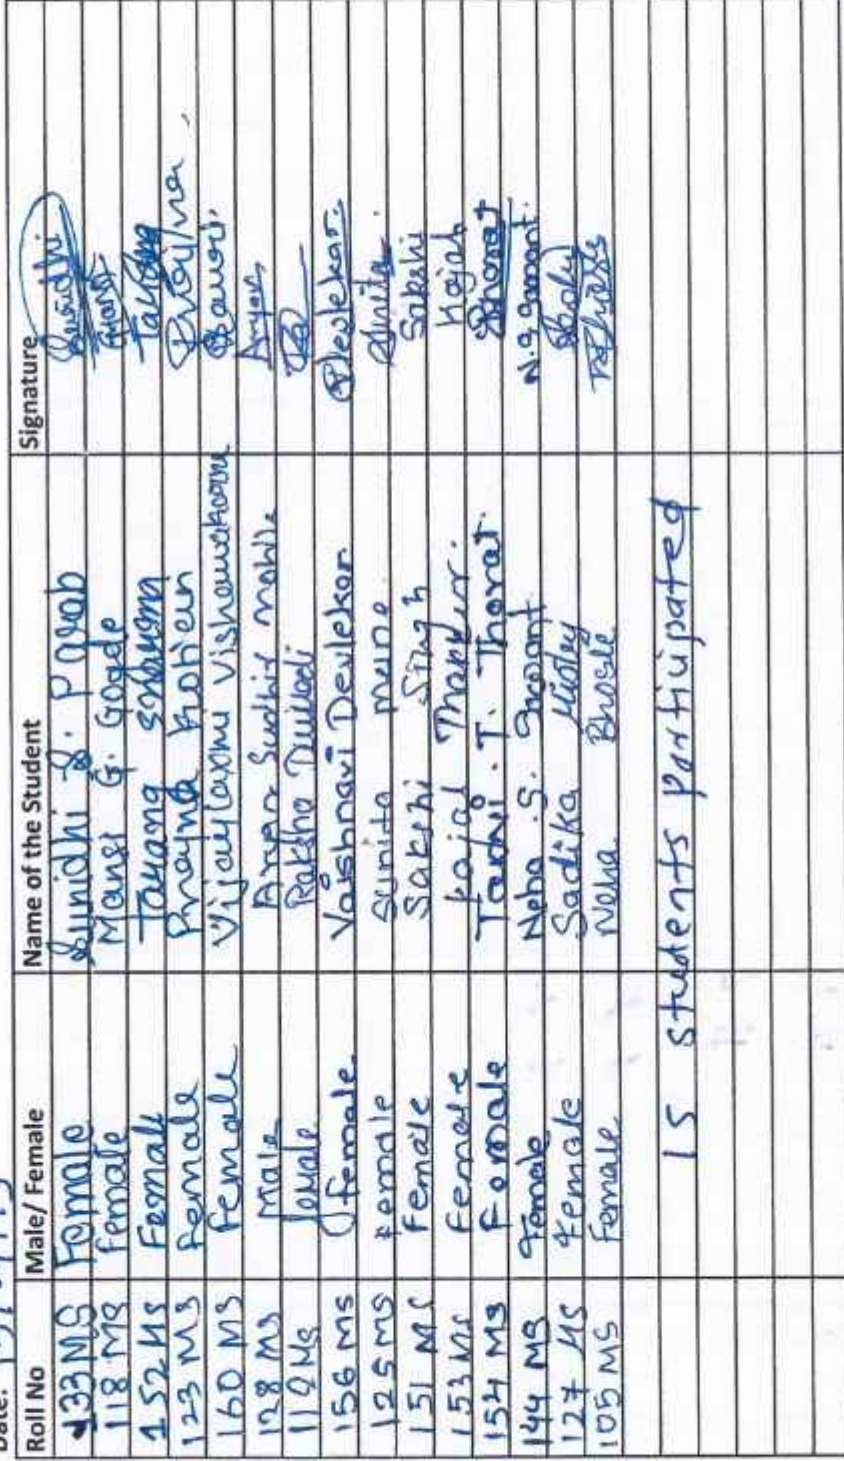 Date:
Roll No Male/ Female Name of the Student Signature
133 MS Female Sunidhi S. Parab Sunidhi
118 MS Female Mansi G. Gogde
152 MS Female Tarang Sharma Tarang
123 MS Female Prayna Kotien Prayna
160 MS Female Vijaylaxmi Vishawakarma
128 MS Male Aryan Sudhir Mohite Aryan
119 MS female Raksha Dwivedi
156 MS female Vaishnavi Devlekar Devlekar
125 MS Female Sunita mane Sunita
151 MS Female Sakshi Singh Sakshi
153 MS Female Kajal Thakur. Kajal
154 MS Female Tanvi . T. Thorat. Thorat
144 MS Female Neha .S. Sawant N.S. Sawant.
127 MS Female Sadika Mistry
105 MS Female Neha Bhosle
15 students participated